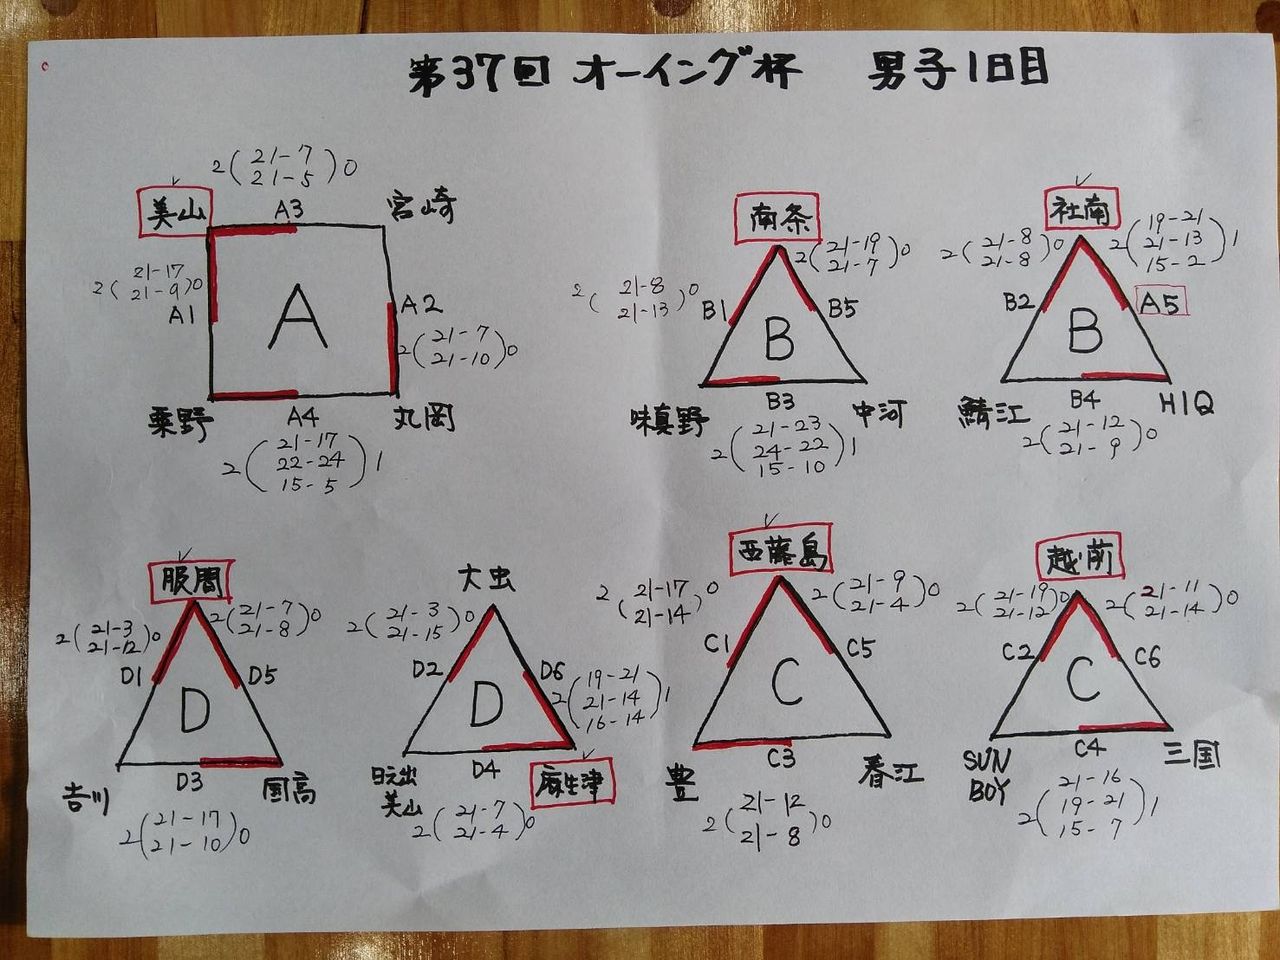 第37回 オーイング杯 男子1日目
2(21-7 21-5)0
美山
A3
宮崎
2(21-17 21-9)0
A1
A
A2
2(21-7 21-10)0
粟野
A4
丸岡
2(21-17 22-24 15-5)1
南条
2(21-8 21-13)0
2(21-19 21-7)0
B1
B
B5
味真野
B3
中河
2(21-23 24-22 15-10)1
社南
2(21-8 21-8)0
2(19-21 21-13 15-2)1
B2
B
A5
鯖江
B4
H1Q
2(21-12 21-9)0
服間
2(21-3 21-12)0
2(21-7 21-8)0
D1
D
D5
吉川
D3
国高
2(21-17 21-10)0
大虫
2(21-3 21-15)0
D2
D
D6
2(19-21 21-14 16-14)1
日之出
美山
D4
麻生津
2(21-7 21-4)0
西藤島
2(21-17 21-14)0
2(21-9 21-4)0
C1
C
C5
豊
C3
春江
2(21-12 21-8)0
越前
2(21-19 21-12)0
2(21-11 21-14)0
C2
C
C6
SUN
BOY
C4
三国
2(21-16 19-21 15-7)1